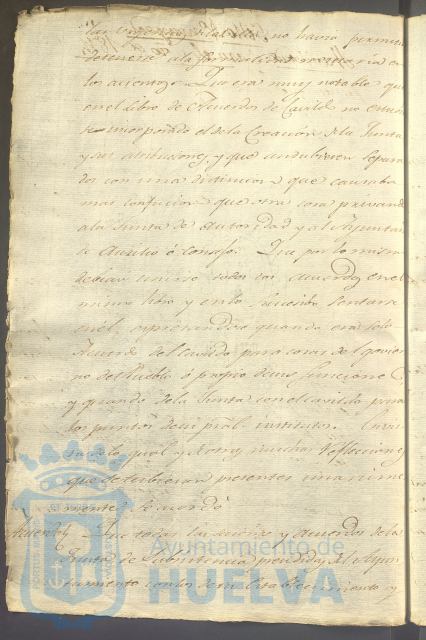 no havia permiti
detenerse a la formalidad
los acientos. Que era muy notable que
en el libro de Acuerdos de Cavildo no estuvie
incorporado el de la Creacion de la Junta
y sus atribuciones, y que andubiesen separa
dos con una distincion que causaba
mas confucion que otra cosa privando
a la Junta de autoridad y al Ayuntam
de Auxilio ó consejo. Que por lo mismo
debian unirse todos los acuerdos en el
mismo libro y en lo sucesivo sentarse
en el, expresandose quando era solo
Acuerdo del Cavildo para cosas del govier
no del Pueblo ó propio de sus funciones,
y quando de la Junta con el cavildo para
los puntos de su pral. instituto. En vis
ta de lo qual y de otras muchas reflecciones
que se tubieron presentes unanime
mente se acordó
Acuerdo Que todas las sesiones y acuerdos de la
Junta de Subsistencia presidida del Ayun
tamiento con los de su establecimiento y
Ayuntamiento de
HUELVA